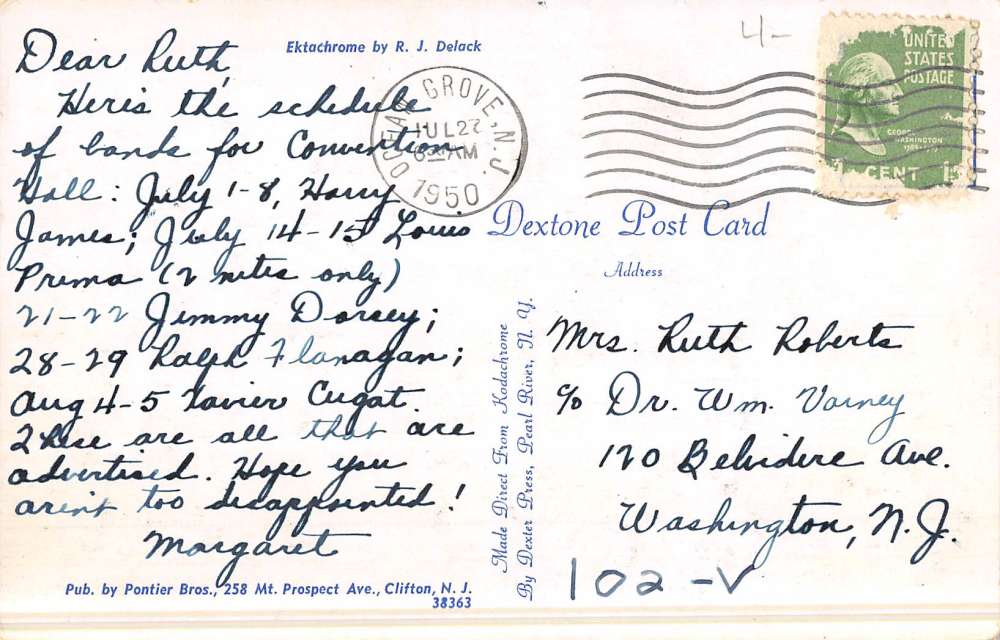 Dear Ruth,
Heris the schedule
of bands for Convention
Hall: July 1-8, Harry
James; July 14-15 Louis
Prima (2 nites only)
21-22 Jimmy Dorsey;
28-29 Ralph Flanagan;
Aug 4-5 Xavier Cugat.
These are all that are
advertised. Hope you
arin't too disappointed!
Margaret
Pub. by Pontier Bros., 258 Mt. Prospect Ave., Clifton, N. J.
38363
Ektachrome by R. J. Delack
OCEAN GROVE, N.J.
JUL 27
AM
1950
4-
UNITED
STATES
POSTAGE
GEORGE
WASHINGTON
CENT 1
Dextone Post Card
Address
Made Direct From Kodachrome
By Dexter Press, Pearl River, N. Y.
Mrs. Ruth Roberts
c/o Dr. Wm. Varney
120 Belvidere Ave.
Washington, N.J.
102-V